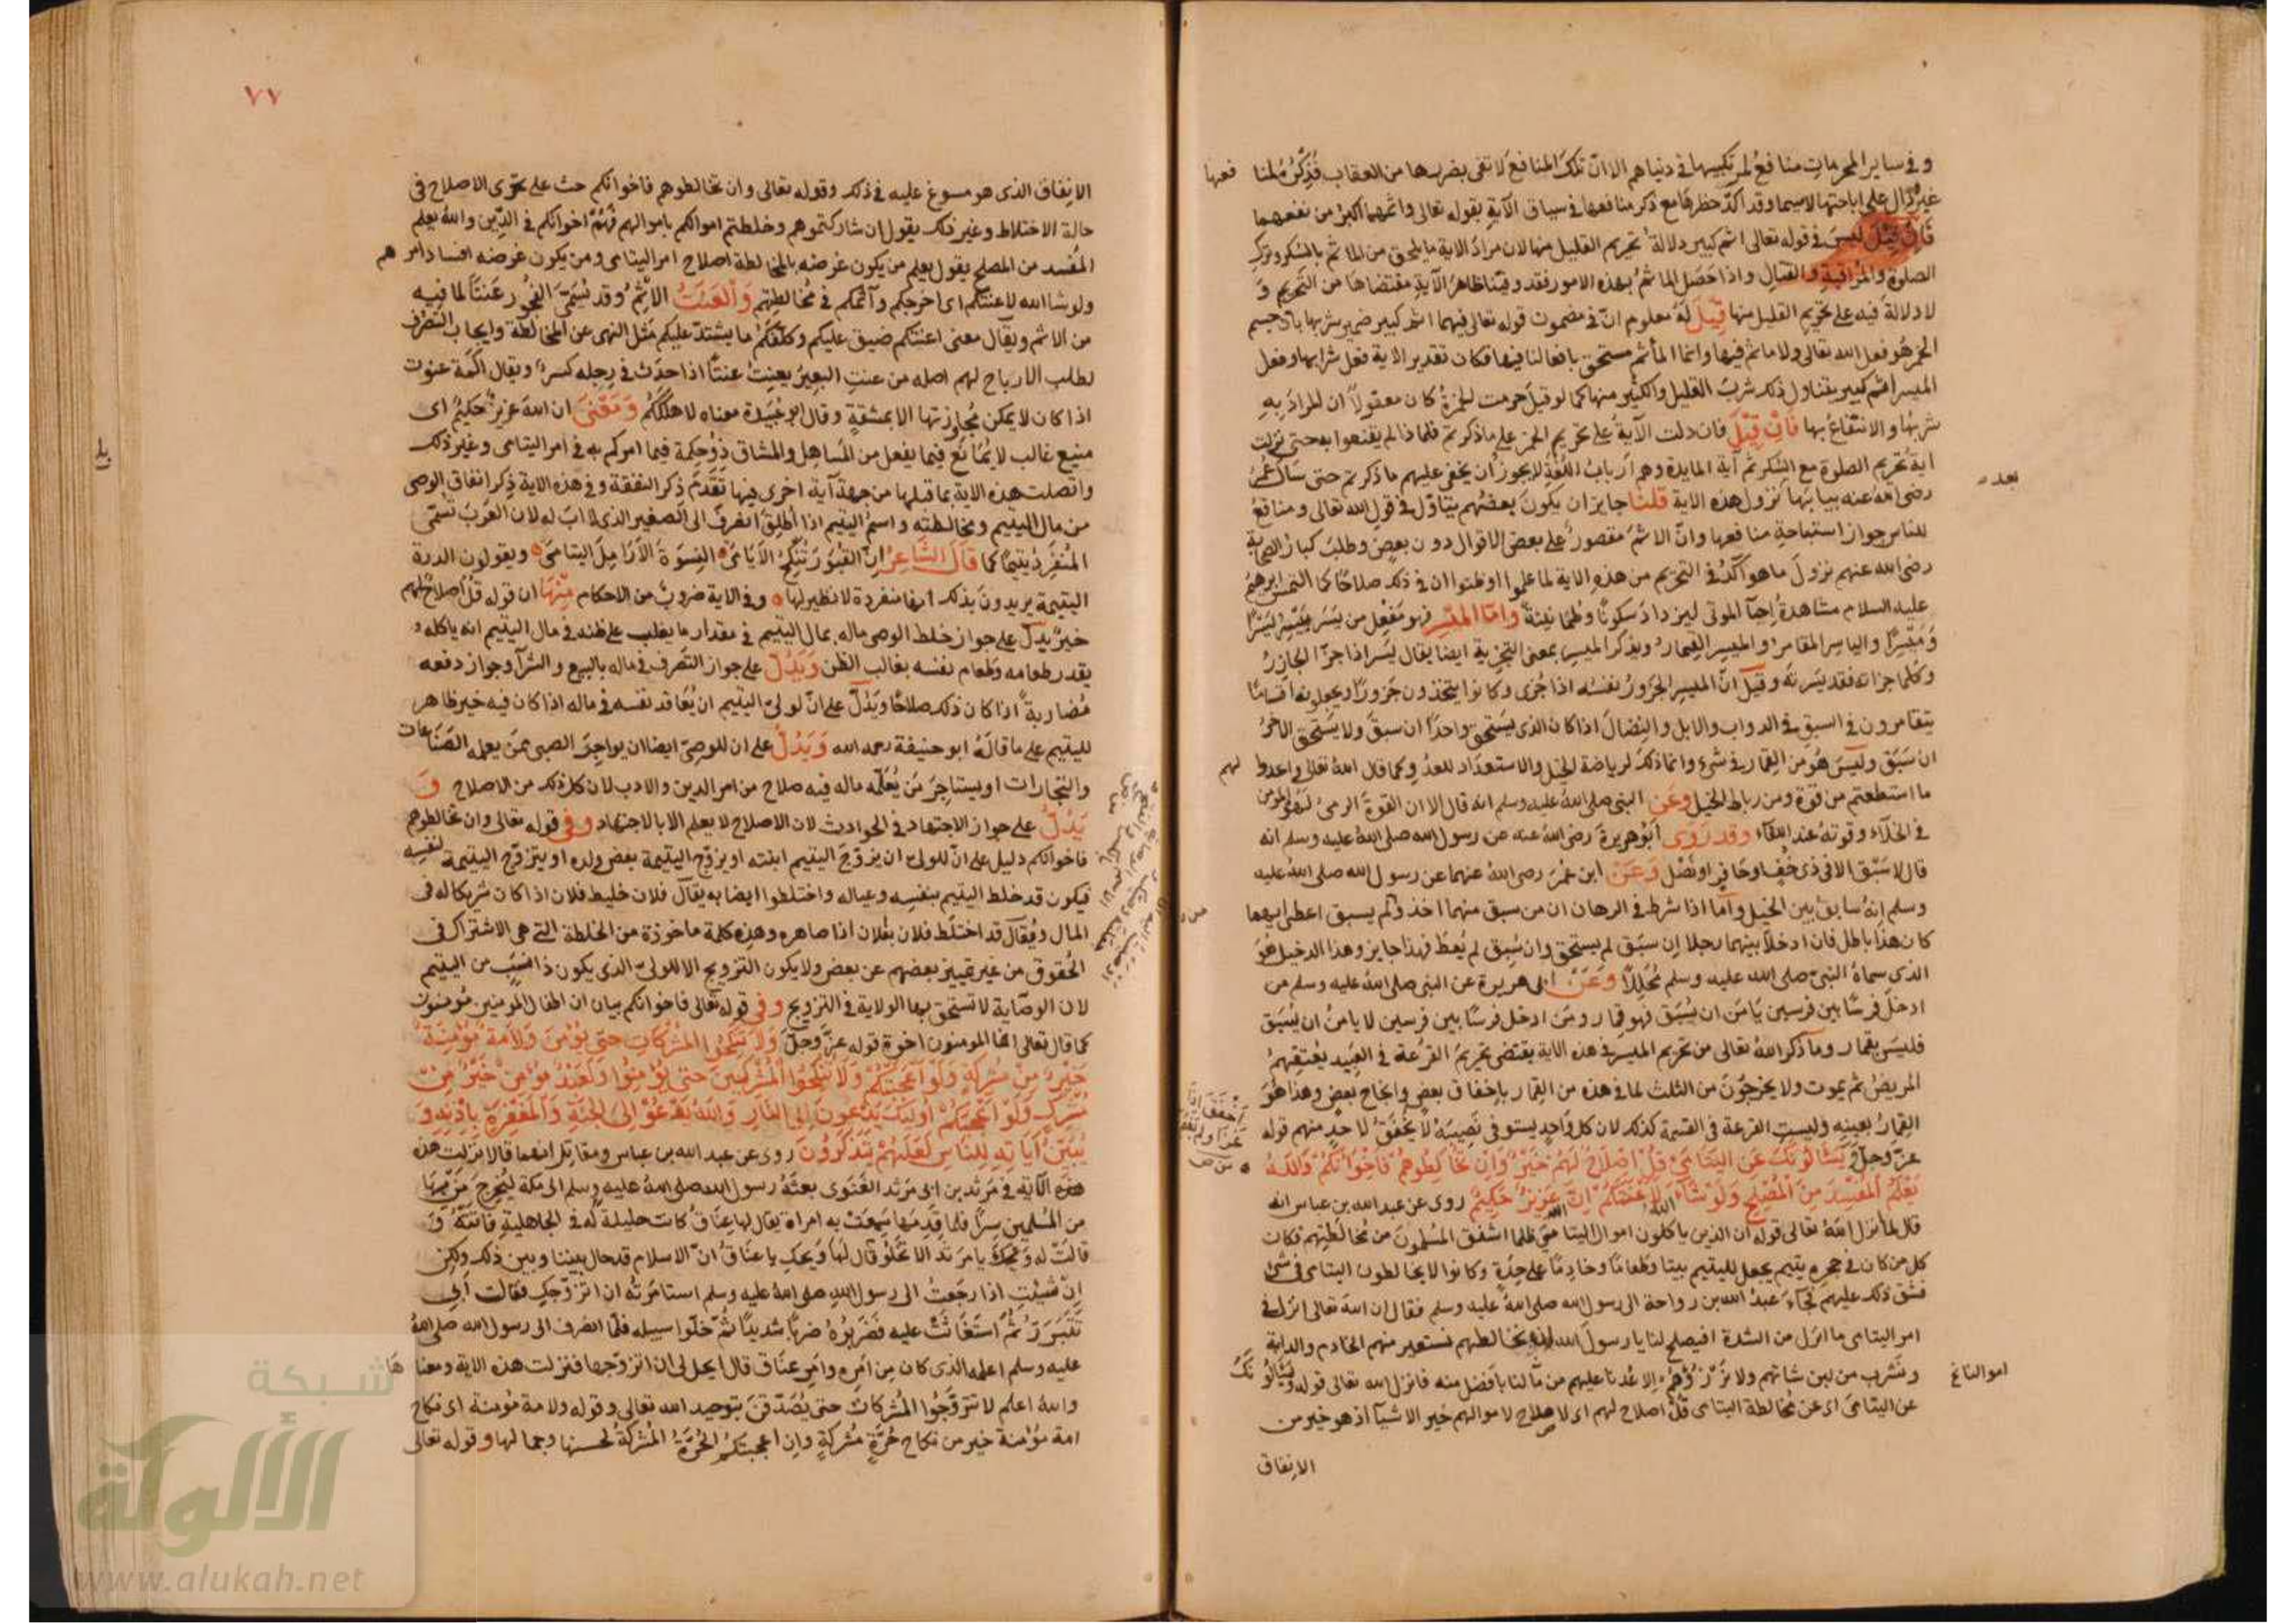 وفي ساير المحرمات منافع لمرتكبيها في دنياهم الا ان تلك المنافع لا تفى بضررها من العقاب فذكر لمنا فعها
غير دال على اباحتها لاسيما وقد اكد حظرها مع ذكر منافعها في سياق الآية بقوله تعالى واثمهما اكبر من نفعهما
فان قيل ليس في قوله تعالى اثم كبير دلالة تحريم القليل منها لان مراد الاية ما يلحق من الماثم بالسكر وترك
الصلوة والمواثبة والقتال واذا حصل الماثم بهذه الامور فقد وفينا ظاهر الآية مقتضاها من التحريم و
لا دلالة فيه على تحريم القليل منها قيل له معلوم ان في مضمون قوله تعالى فيهما اثم كبير ضمير شربها لان جسم
الخمر هو فعل الله تعالى ولا ماثم فيها وانما المأثم مستحق بافعالنا فيها فكان تقدير الاية فعل شرابها وفعل
الميسر اثم كبير يتناول ذلك شرب القليل والكثير منها كما لو قيل حرمت الخمرة كان معقولا ان المراد به
شربها والانتفاع بها فان قيل فان دلت الآية على تحريم الخمر على ما ذكرتم فلماذا لم يقنعوا به حتى نزلت
اية تحريم الصلوة مع السكر ثم آية المايدة وهم ارباب اللغة لا يجوز ان يخفى عليهم ما ذكرتم حتى سال عمر
بعد
رضى الله عنه بيانها نزول هذه الاية قلنا جايز ان يكون بعضهم يتاول في قول الله تعالى ومنافع
للناس جواز استباحة منافعها وان الاثم مقصور على بعض الاقوال دون بعض وطلب كبار الصحابة
رضى الله عنهم نزول ما هو آكد في التحريم من هذه الاية لما علموا او ظنوا ان في ذلك صلاحا كما التمس ابرهيم
عليه السلام مشاهدة احيآ الموتى ليزداد سكونا وطمانينة واما الميسر فهو مفعل من يسر ييسر يسرا
وميسرا والياسر المقامر والميسر القمار ويذكر الميسر بمعنى التجزية ايضا يقال يسر اذا جزا الجازر
وكلما جزاته فقد يسرته وقيل ان الميسر الجزور نفسه اذا جزى وكانوا يتخذون جزورا ويجعلونه اقساما
يتقامرون في السبق في الدواب والابل والنضال اذا كان الذى يستحق واحدا ان سبق ولا يستحق الاخر
ان سبق وليس هو من القمار في شى وانما ذلك لرياضة الخيل والاستعداد للعدو كما قال الله تعالى واعدوا لهم
ما استطعتم من قوة ومن رباط الخيل وعن النبى صلى الله عليه وسلم انه قال الا ان القوة الرمى
في الخلآء وقوته عند اللقآء وقد روى ابو هريرة رضى الله عنه عن رسول الله صلى الله عليه وسلم انه
قال لا سبق الا في ذى خف او حافر او نصل وعن ابن عمر رضى الله عنهما عن رسول الله صلى الله عليه
وسلم انه سابق بين الخيل واما اذا شرط في الرهان ان من سبق منهما اخذ ولم يسبق اعطى ايهما
كان هذا باطل فان ادخلا بينهما رجلا ان سبق لم يستحق وان سبق لم يعط فهذا جايز وهذا الدخيل هو
الذى سماه النبى صلى الله عليه وسلم محللا وعن ابى هريرة عن النبى صلى الله عليه وسلم من
ادخل فرسا بين فرسين يامن ان يسبق فهو قمار ومن ادخل فرسا بين فرسين لا يامن ان يسبق
فليس بقمار وما ذكر الله تعالى من تحريم الميسر في هذه الاية يقتضى تحريم القرعة في العبيد يعتقهم
المريض ثم يموت ولا يخرجون من الثلث لما في هذه من القمار باخفاق بعض وانجاح بعض وهذا هو
القمار بعينه وليست القرعة في القسمة كذلك لان كل واحد يستوفى نصيبه لا يخفق لاحد منهم قوله
عز وجل ويسالونك عن اليتامى قل اصلاح لهم خير وان تخالطوهم فاخوانكم والله
يعلم المفسد من المصلح ولو شآء الله لاعنتكم ان الله عزيز حكيم روى عن عبد الله بن عباس انه
قال لما انزل الله تعالى قوله ان الذين ياكلون اموال اليتامى ظلما اشفق المسلمون من مخالطتهم فكان
كل من كان في حجره يتيم يجعل لليتيم بيتا وطعاما وخادما على حدة وكانوا لا يخالطون اليتامى في شى
فشق ذلك عليهم فجآء عبد الله بن رواحة الى رسول الله صلى الله عليه وسلم فقال ان الله تعالى انزل في
امر اليتامى ما انزل من الشدة افيصلح لنا يا رسول الله ان نخالطهم نستعير منهم الخادم والدابة
ونشرب من لبن شاتهم ولا نرزؤهم الا عدنا عليهم من مالنا بافضل منه فانزل الله تعالى قوله ويسالونك
اموالنا
عن اليتامى اى عن مخالطة اليتامى قل اصلاح لهم اى لاصلاح لاموالهم خير الاشيآ اذ هو خير من
الانفاق
٧٧
الانفاق الذى هو مسوغ عليه في ذلك وقوله تعالى وان تخالطوهم فاخوانكم حث على تحرى الاصلاح في
حالة الاختلاط وغير ذلك يقول ان شاركتموهم وخلطتم اموالكم باموالهم فهم اخوانكم في الدين والله يعلم
المفسد من المصلح يقول يعلم من يكون غرضه بالمخالطة اصلاح امر اليتامى ومن يكون غرضه افساد امرهم
ولو شا الله لاعنتكم اى احرجكم وآثمكم في مخالطتهم والعنت الاثم وقد يسمى الفجور عنتا لما فيه
من الاثم ويقال معنى اعنتكم ضيق عليكم وكلفكم ما يشتد عليكم مثل النهى عن المخالطة وايجاب التصرف
لطلب الارباح لهم اصله من عنت البعير يعنت عنتا اذا حدث في رجله كسر ويقال اكمة عنوت
اذا كان لا يمكن مجاوزتها الا بمشقة وقال ابو عبيدة معناه لاهلككم ومعنى ان الله عزيز حكيم اى
منيع غالب لا يمانع فيما يفعل من المساهل والمشاق ذو حكمة فيما امركم به في امر اليتامى وغير ذلك
واتصلت هذه الاية بما قبلها من جهة آية اخرى فيها تقدم ذكر النفقة وفي هذه الاية ذكر انفاق الوصى
من مال اليتيم ومخالطته واسم اليتيم اذا اطلق انصرف الى الصغير الذى لا اب له لان العرب تسمى
المنفرد يتيما كما قال الشاعر ان القبور تنكح الايامى النسوة الارامل اليتامى ويقولون الدرة
اليتيمة يريدون بذلك انها منفردة لا نظير لها وفي الاية ضروب من الاحكام منها ان قوله قل اصلاح لهم
خير يدل على جواز خلط الوصى ماله بمال اليتيم في مقدار ما يغلب على ظنه في مال اليتيم انه ياكله و
يقدر طعامه وطعام نفسه بغالب الظن ويدل على جواز التصرف في ماله بالبيع والشرآ وجواز دفعه
مضاربة اذا كان ذلك صلاحا ويدل على ان لولى اليتيم ان يعاقد نفسه في ماله اذا كان فيه خير ظاهر
لليتيم على ما قاله ابو حنيفة رحمه الله ويدل على ان للوصى ايضا ان يواجر الصبى ممن يعلمه الصناعات
والتجارات او يستاجر من يعلمه ماله فيه صلاح من امر الدين والادب لان كل ذلك من الاصلاح و
يدل على جواز الاجتهاد في الحوادث لان الاصلاح لا يعلم الا بالاجتهاد وفي قوله تعالى وان تخالطوهم
فاخوانكم دليل على ان للولى ان يزوج اليتيم ابنته او يزوج اليتيمة بعض ولده او يتزوج اليتيمة لنفسه
فيكون قد خلط اليتيم بنفسه وعياله واختلطوا ايضا به يقال فلان خليط فلان اذا كان شريكا له في
المال ويقال قد اختلط فلان بفلان اذا صاهره وهذه كلمة ماخوذة من الخلطة التى هى الاشتراك في
الحقوق من غير تمييز بعضهم عن بعض ولا يكون التزويج الا للولى الذى يكون ذا نسب من اليتيم
لان الوصاية لا تستحق بها الولاية في التزويج وفي قوله تعالى فاخوانكم بيان ان اطفال المومنين مومنون
كما قال تعالى انما المومنون اخوة قوله عز وجل ولا تنكحوا المشركات حتى يؤمن ولامة مؤمنة
خير من مشركة ولو اعجبتكم ولا تنكحوا المشركين حتى يؤمنوا ولعبد مؤمن خير من
مشرك ولو اعجبكم اولئك يدعون الى النار والله يدعو الى الجنة والمغفرة باذنه و
يبين آياته للناس لعلهم يتذكرون روى عن عبد الله بن عباس ومقاتل انهما قالا نزلت هذه
هذه الآية في مرثد بن ابى مرثد الغنوى بعثه رسول الله صلى الله عليه وسلم الى مكة ليخرج من فيها
من المسلمين سرا فلما قدمها سمعت به امراة يقال لها عناق كانت حليلة له في الجاهلية فاتته و
قالت له ويحك يا مرثد الا تخلو قال لها ويحك يا عناق ان الاسلام قد حال بيننا وبين ذلك ولكن
ان شئت اذا رجعت الى رسول الله صلى الله عليه وسلم استامرته ان اتزوجك فقالت ابى
تتبرر ثم استغاثت عليه فضربوه ضربا شديدا ثم خلوا سبيله فلما انصرف الى رسول الله صلى الله
عليه وسلم اعلمه الذى كان من امره وامر عناق قال ايحل لى ان اتزوجها فنزلت هذه الاية ومعناها
والله اعلم لا تتزوجوا المشركات حتى يصدقن بتوحيد الله تعالى وقوله ولامة مؤمنة اى نكاح
امة مؤمنة خير من نكاح حرة مشركة وان اعجبتكم الحرة المشركة لحسنها وجمالها وقوله تعالى
شبكة
الألوكة
www.alukah.net